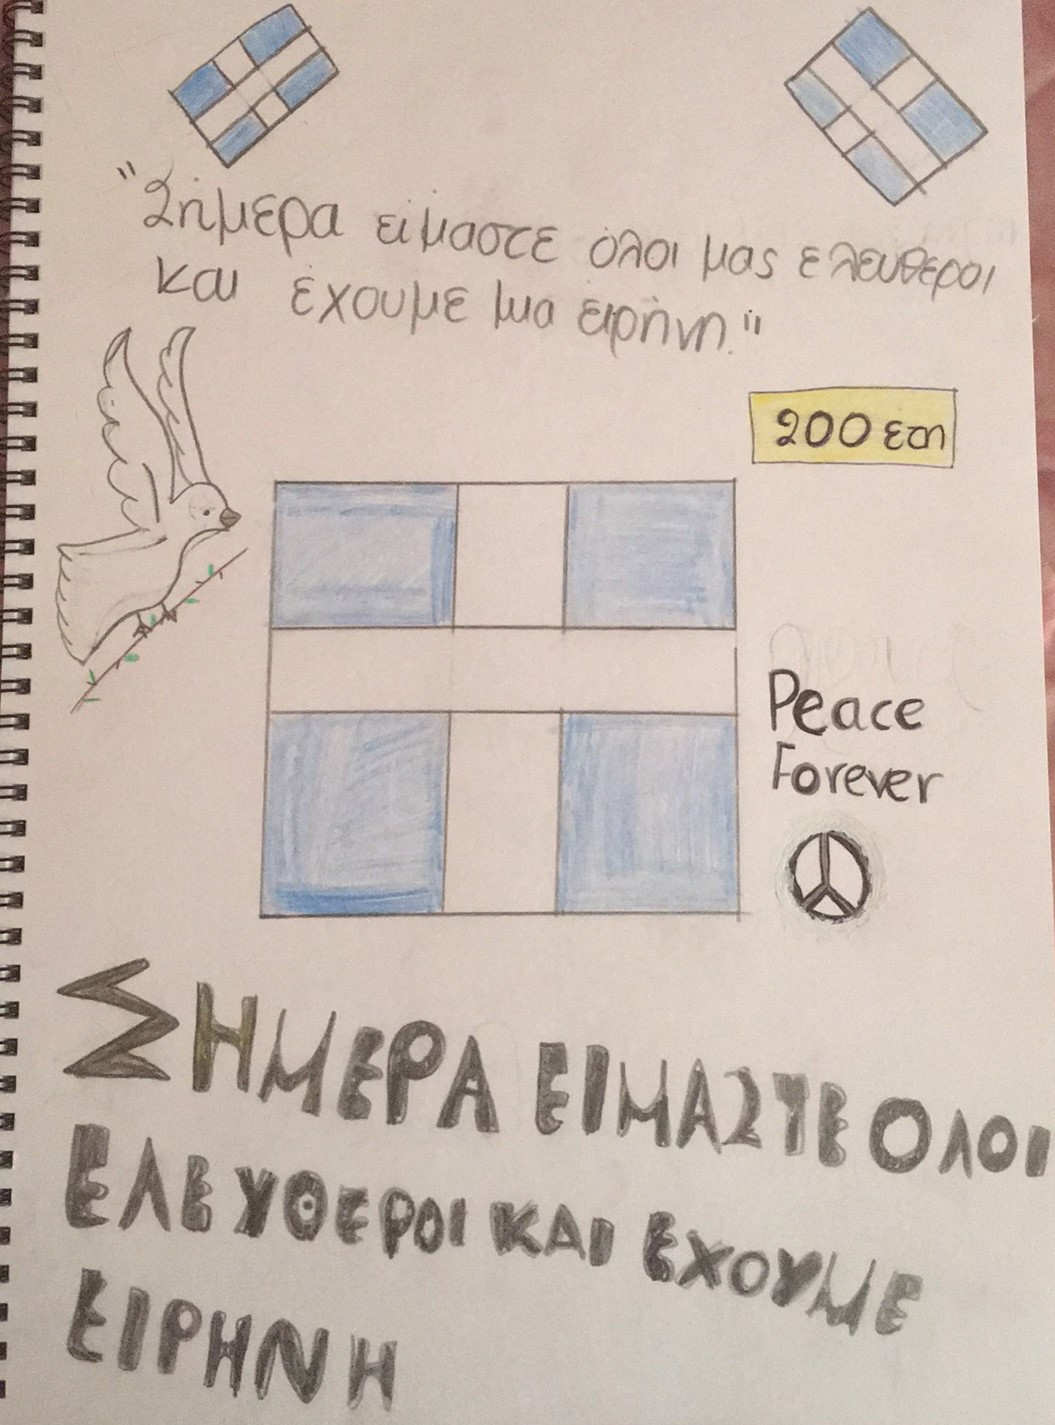 "Σήμερα είμαστε όλοι μας ελεύθεροι
και έχουμε μια ειρήνη."
200 έτη
Peace
Forever
ΣΗΜΕΡΑ ΕΙΜΑΣΤΕ ΟΛΟΙ
ΕΛΕΥΘΕΡΟΙ ΚΑΙ ΕΧΟΥΜΕ
ΕΙΡΗΝΗ